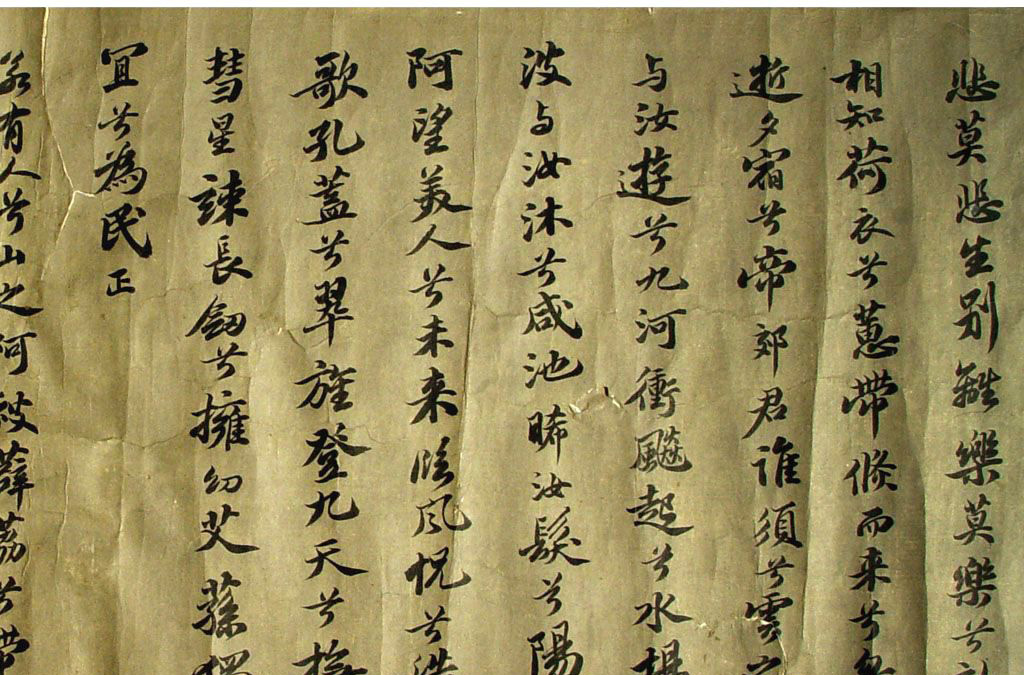 悲莫悲生別離樂莫樂兮
相知荷衣兮蕙帶倏而来兮忽
逝夕宿兮帝郊君誰須兮雲之
与汝遊兮九河衝飈起兮水揚
波与汝沐兮咸池晞汝髮兮陽
阿望美人兮未来臨風怳兮浩
歌孔蓋兮翠旌登九天兮撫
彗星竦長劒兮擁幼艾蓀獨
宜兮為民正
若有人兮山之阿被薜荔兮帶